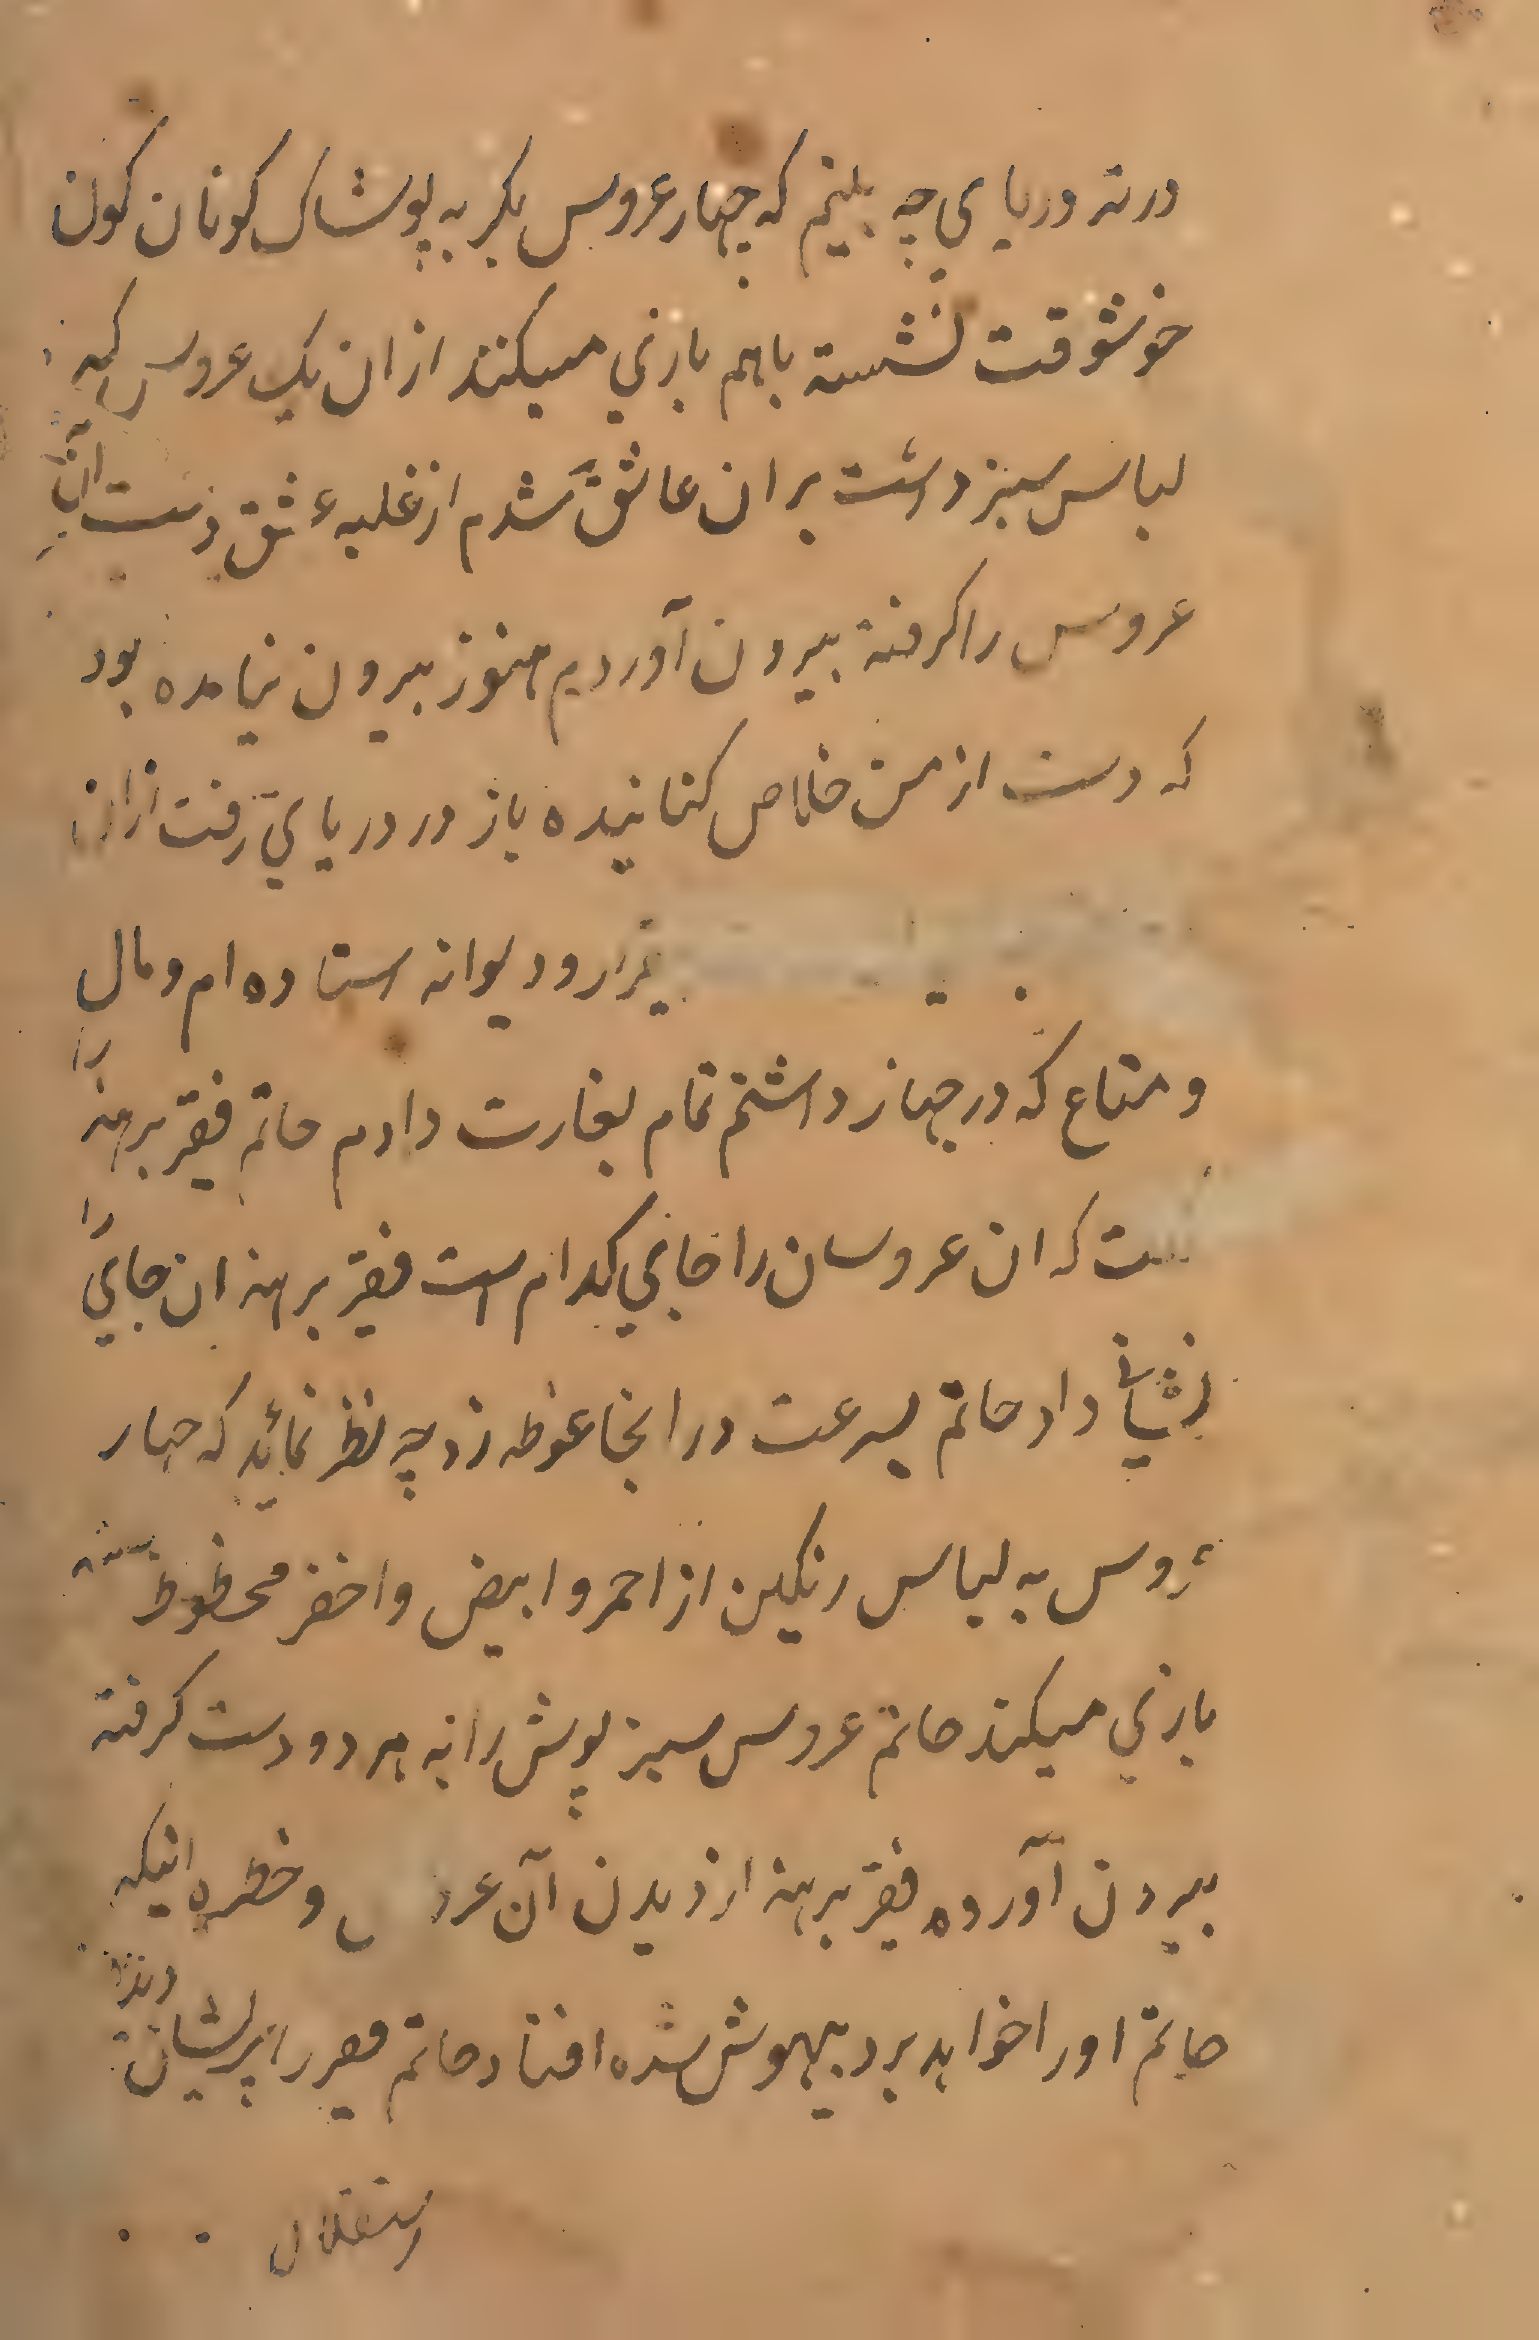 درته دریای چه بینم که چهار عروس بکر به پوشاک کونان کون
خوشوقت نشسته باهم بازی میکنند ازان یک عروس که
لباس سبز داشت بران عاشق شدم از غلبه عشق دست آن
عروس را کرفته بیرون آوردیم هنوز بیرون نیامده بود
که دست از من خلاص کنانیده باز در دریای رفت ازان
بیقرار و دیوانه استاده ام و مال
و متاع که در جهاز داشتم تمام بغارت دادم حاتم فقیر برهنه را
ست که ان عروسان را جای کدام است فقیر برهنه ان جای را
نشانی داد حاتم بسرعت درانجا غوطه زد چه نظر نماید که چهار
عروس به لباس رنکین از احمر و ابیض و اخضر محظوظ
بازی میکند حاتم عروس سبز پوش را به هر دو دست کرفته
بیرون آورده فقیر برهنه از دیدن آن عروس و خطره اینکه
حاتم او را خواهد برد بیهوش شده افتاد حاتم فقیر را پریشان
استقلال